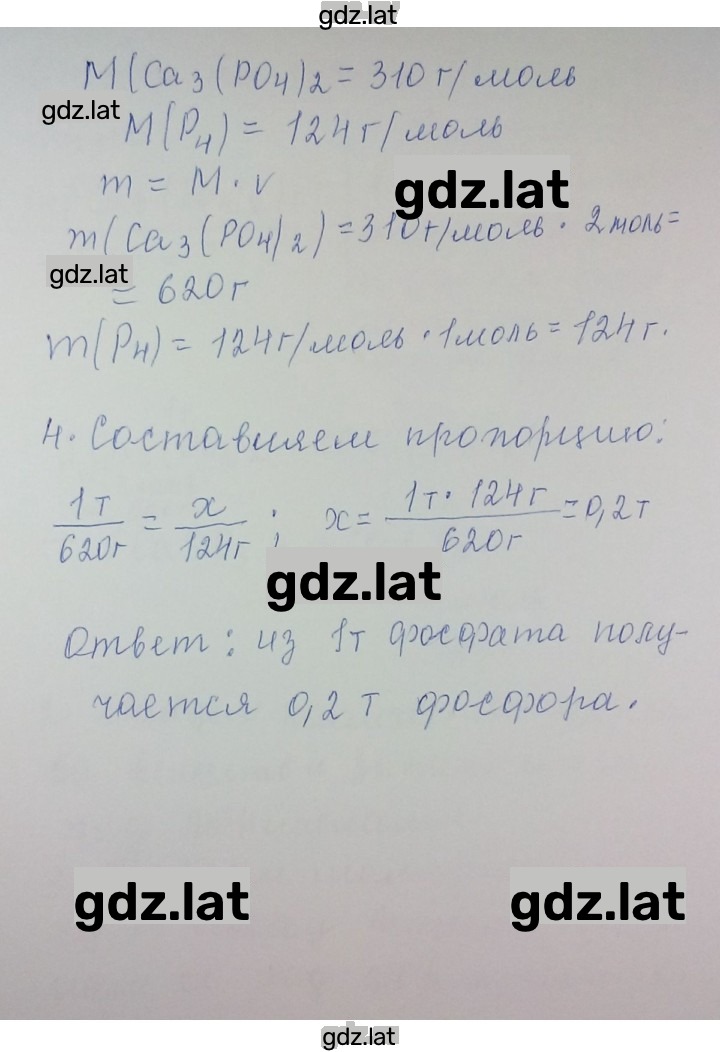 gdz.lat
M(Ca3(PO4)2 = 310 г/моль
gdz.lat
M(P4) = 124 г/моль
m = M · ν
gdz.lat
m(Ca3(PO4)2) = 310 г/моль · 2 моль =
gdz.lat
= 620 г
m(P4) = 124 г/моль · 1 моль = 124 г.
4. Составляем пропорцию:
1т/620г = x/124г ; x = 1т · 124г/620г = 0,2 т
gdz.lat
Ответ: из 1т фосфата полу-
чается 0,2 т фосфора.
gdz.lat gdz.lat
gdz.lat